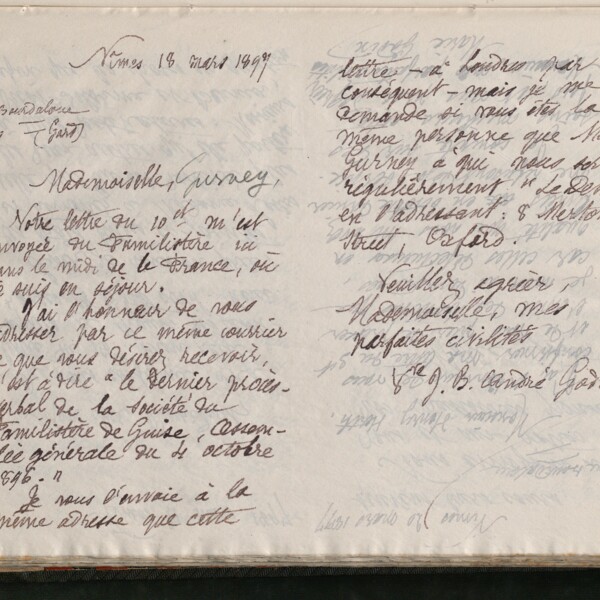 Nîmes 18 mars 1897
Bourdaloue
(Gard)
Mademoiselle, Gurney,
Votre lettre du 10 ct m'est
envoyée du Familistère ici
dans le midi de la France, où
je suis en séjour.
J'ai l'honneur de vous
adresser par ce même courrier
ce que vous désirez recevoir,
c'est à dire "le dernier procès-
verbal de la société du
Familistère de Guise, assem-
blée générale du 4 octobre
1896."
Je vous l'envoie à la
même adresse que cette
lettre - à Londres par
conséquent - mais je me
demande si vous êtes la
même personne que M
Gurney à qui nous
régulièrement "Le Dev
en l'adressant: 8 Merton
Street, Oxford.
Veuillez agréer,
Mademoiselle, mes
parfaites civilités
Vve J. B. André God